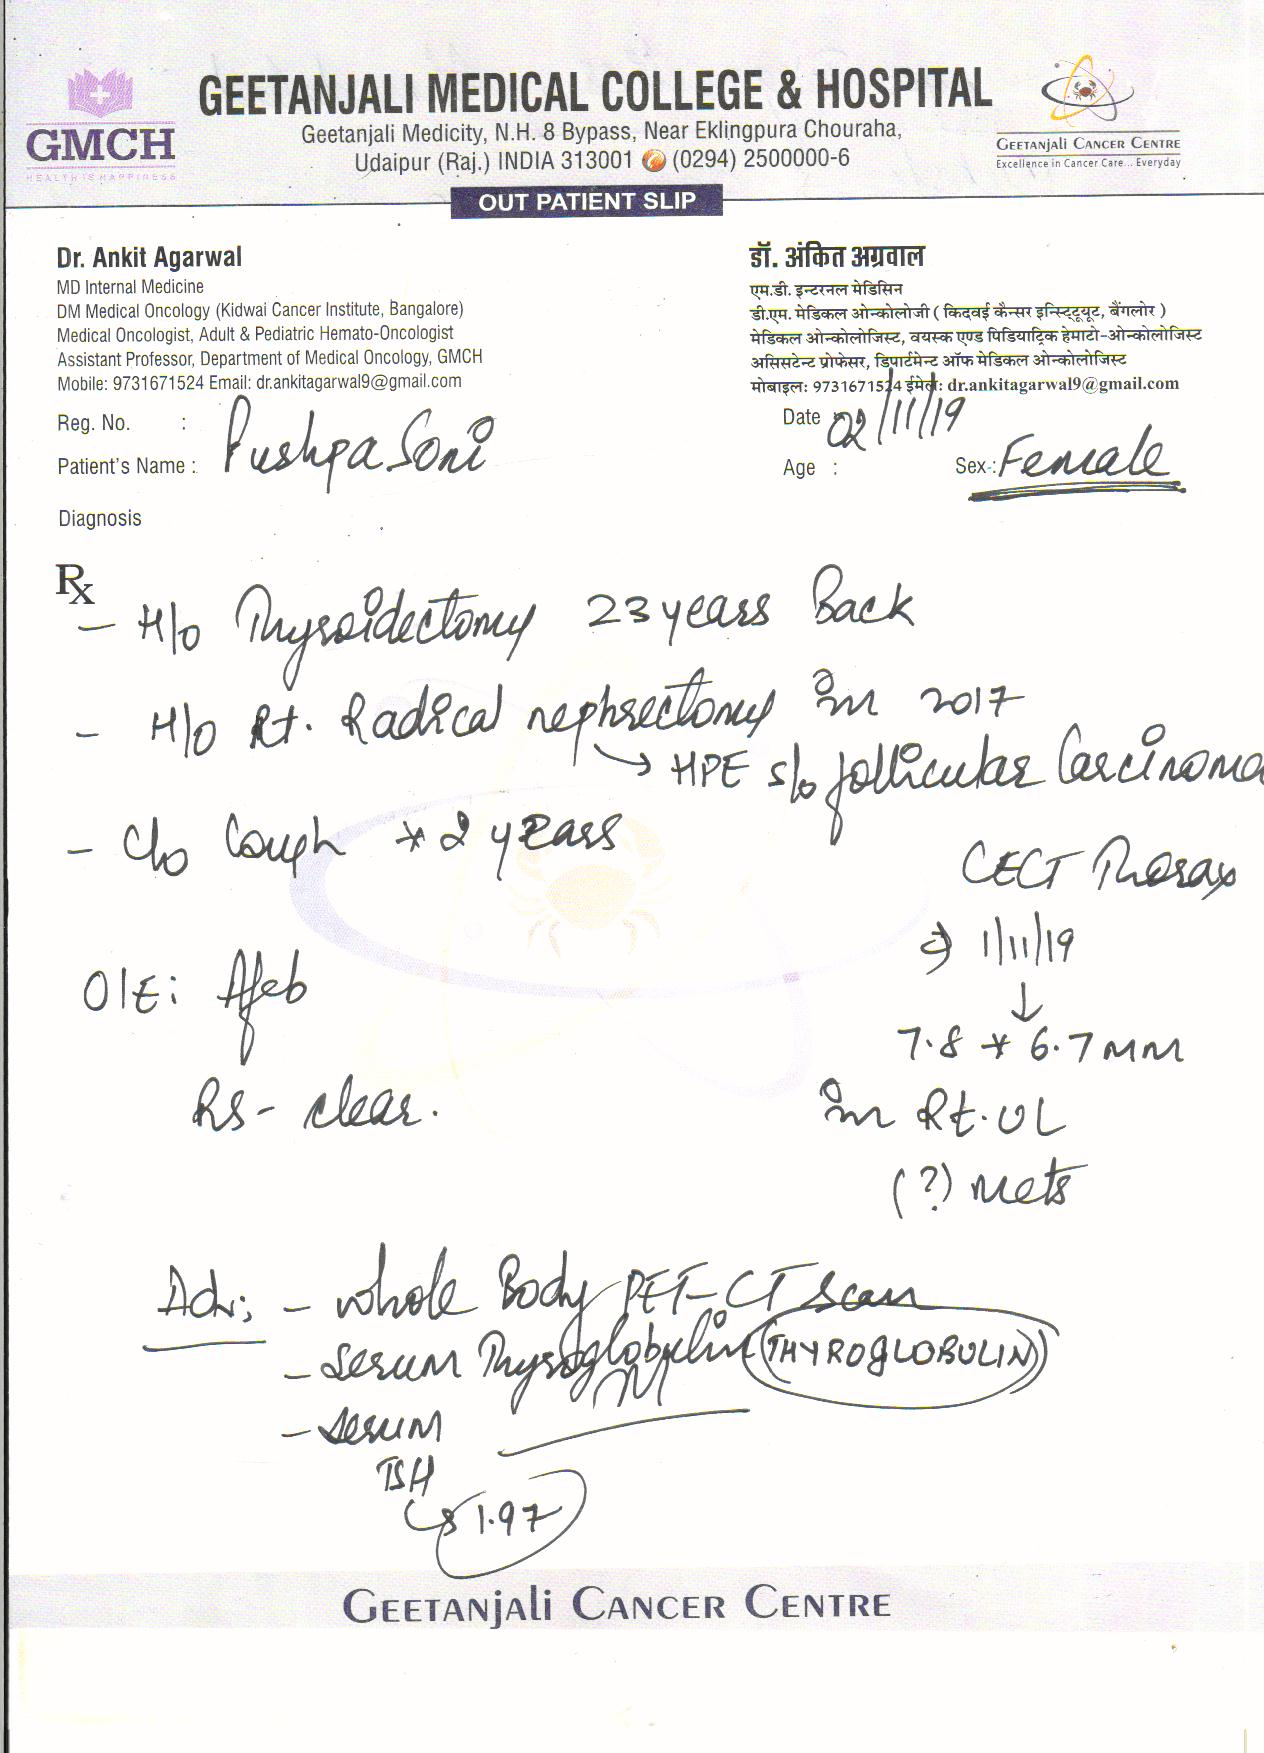 GEETANJALI MEDICAL COLLEGE & HOSPITAL
Geetanjali Medicity, N.H. 8 Bypass, Near Eklingpura Chouraha,
Udaipur (Raj.) INDIA 313001 (0294) 2500000-6
GMCH
HEALTH IS HAPPINESS
GEETANJALI CANCER CENTRE
Excellence in Cancer Care... Everyday
OUT PATIENT SLIP
Dr. Ankit Agarwal
MD Internal Medicine
DM Medical Oncology (Kidwai Cancer Institute, Bangalore)
Medical Oncologist, Adult & Pediatric Hemato-Oncologist
Assistant Professor, Department of Medical Oncology, GMCH
Mobile: 9731671524 Email: dr.ankitagarwal9@gmail.com
डॉ. अंकित अग्रवाल
एम.डी. इन्टरनल मेडिसिन
डी.एम. मेडिकल ओन्कोलोजी ( किदवई कैन्सर इन्स्टिट्यूट, बैंगलोर )
मेडिकल ओन्कोलोजिस्ट, वयस्क एण्ड पिडियाट्रिक हेमाटो-ओन्कोलोजिस्ट
असिसटेन्ट प्रोफेसर, डिपार्टमेन्ट ऑफ मेडिकल ओन्कोलोजिस्ट
मोबाइल: 9731671524 ईमेल: dr.ankitagarwal9@gmail.com
Reg. No. :
Date : 02/11/19
Patient's Name : Pushpa Soni
Age : Sex : Female
Diagnosis
Rx
- H/o Thyroidectomy 23 years Back
- H/o Rt. Radical nephrectomy in 2017
→ HPE s/o follicular Carcinoma
- C/o Cough * 2 years
CECT Thorax
1/11/19
↓
O/E: Afeb
7.8 * 6.7 MM
RS - clear.
in Rt. UL
(?) mets
Adv: - whole Body PET-CT Scan
- Serum Thyroglobulin (THYROGLOBULIN)
- Serum
TSH
1.97
GEETANJALI CANCER CENTRE